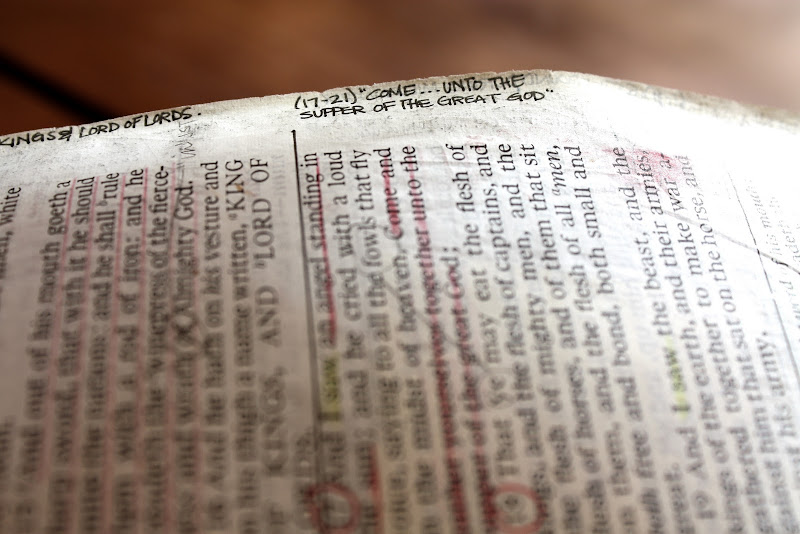 KINGS & LORD OF LORDS.
(17-21) "COME...UNTO THE
SUPPER OF THE GREAT GOD"
white
out of his mouth goeth a
sword, that with it he should
nations: and he shall rule
with a rod of iron: and he
the winepress of the fierce-
and wrath of Almighty God.
And he hath on his vesture and
on his thigh a name written, KING
OF KINGS, AND LORD OF
And I saw an angel standing in
and he cried with a loud
voice, saying to all the fowls that fly
in the midst of heaven, Come and
gather yourselves together unto the
supper of the great God;
18 That ye may eat the flesh of
kings, and the flesh of captains, and
the flesh of mighty men, and the
flesh of horses, and of them that sit
on them, and the flesh of all men,
both free and bond, both small and
great.
19 And I saw the beast, and the
kings of the earth, and their armies,
gathered together to make war
against him that sat on the horse, and
his army.